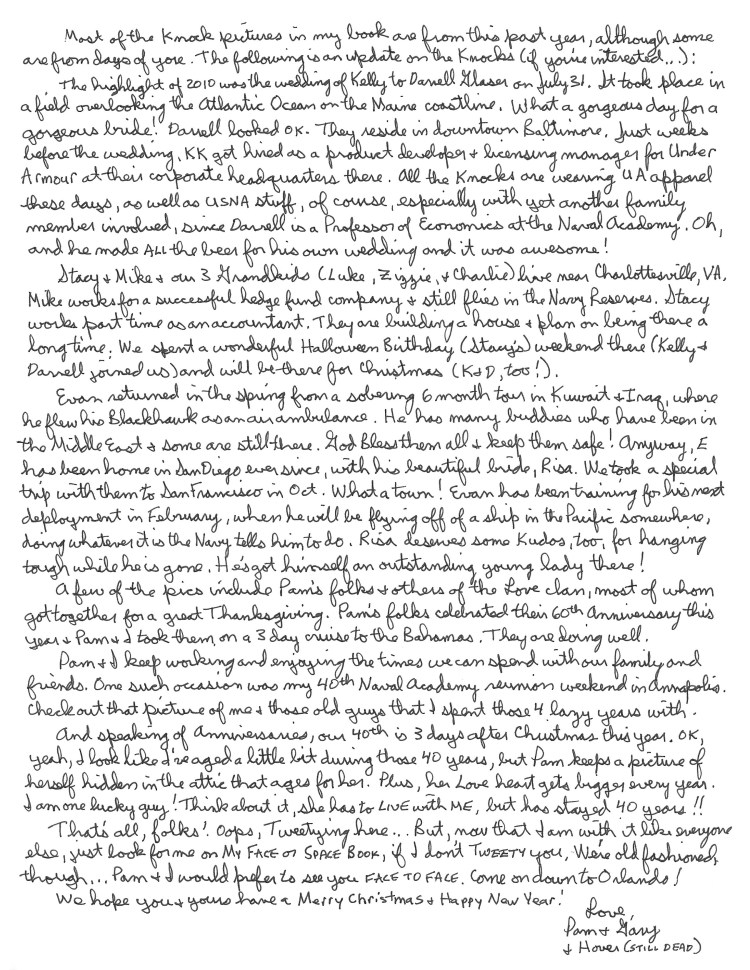 Most of the Knock pictures in my book are from this past year, although some
are from days of yore. The following is an update on the Knocks (if you're interested...):
The highlight of 2010 was the wedding of Kelly to Darrell Glaser on July 31. It took place in
a field overlooking the Atlantic Ocean on the Maine coastline. What a gorgeous day for a
gorgeous bride! Darrell looked OK. They reside in downtown Baltimore. Just weeks
before the wedding, KK got hired as a product developer + licensing manager for Under
Armour at their corporate headquarters there. All the Knocks are wearing UA apparel
these days, as well as USNA stuff, of course, especially with yet another family
member involved, since Darrell is a Professor of Economics at the Naval Academy. Oh,
and he made ALL the beer for his own wedding and it was awesome!
Stacy + Mike + our 3 Grandkids (Luke, Zizzie, + Charlie) live near Charlottesville, VA.
Mike works for a successful hedge fund company + still flies in the Navy Reserves. Stacy
works part time as an accountant. They are building a house + plan on being there a
long time. We spent a wonderful Halloween Birthday (Stacy's) weekend there (Kelly +
Darrell joined us) and will be there for Christmas (K+D, too!).
Evan returned in the spring from a sobering 6 month tour in Kuwait + Iraq, where
he flew his Blackhawk as an air ambulance. He has many buddies who have been in
the Middle East + some are still there. God Bless them all + keep them safe! Anyway, E
has been home in San Diego ever since, with his beautiful bride, Risa. We took a special
trip with them to San Francisco in Oct. What a town! Evan has been training for his next
deployment in February, when he will be flying off of a ship in the Pacific somewhere,
doing whatever it is the Navy tells him to do. Risa deserves some Kudos, too, for hanging
tough while he is gone. He's got himself an outstanding young lady there!
A few of the pics include Pam's folks + others of the Love clan, most of whom
got together for a great Thanksgiving. Pam's folks celebrated their 60th Anniversary this
year + Pam + I took them on a 3 day cruise to the Bahamas. They are doing well.
Pam + I keep working and enjoying the times we can spend with our family and
friends. One such occasion was my 40th Naval Academy reunion weekend in Annapolis.
Check out that picture of me + those old guys that I spent those 4 lazy years with.
And speaking of Anniversaries, our 40th is 3 days after Christmas this year. OK,
yeah, I look like I've aged a little bit during those 40 years, but Pam keeps a picture of
herself hidden in the attic that ages for her. Plus, her Love heart gets bigger every year.
I am one lucky guy! Think about it, she has to LIVE with ME, but has stayed 40 years!!
That's all, folks! Oops, Tweetying here... But, now that I am with it like everyone
else, just look for me on MY FACE OR SPACE BOOK, if I don't TWEETY you. We're old fashioned,
though... Pam + I would prefer to see you FACE TO FACE. Come on down to Orlando!
We hope you + yours have a Merry Christmas + Happy New Year!
Love,
Pam + Gary
+ Hover (STILL DEAD)